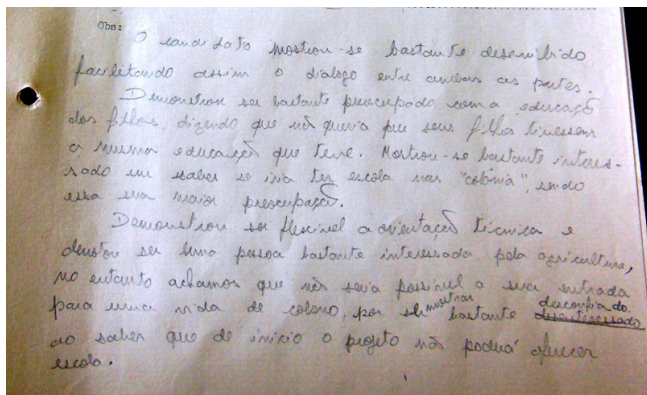 Obs:
O candidato mostrou-se bastante desenibido
facilitando assim o dialogo entre ambas as partes.
Demonstrou ser bastante preocupado com a educação
dos filhos, dizendo que não queria que seus filhos tivessem
a mesma educação que teve. Mostrou-se bastante interes-
sado em saber se iria ter escola nas "colônia", sendo
essa sua maior preocupação.
Demonstrou ser flexivel a orientação técnica e
denotou ser uma pessoa bastante interessada pela agricultura,
no entanto achamos que não seria possivel a sua entrada
para uma vida de colono, por se mostrar bastante desconfiado desinteressado
ao saber que de inicio o projeto não poderá oferecer
escola.